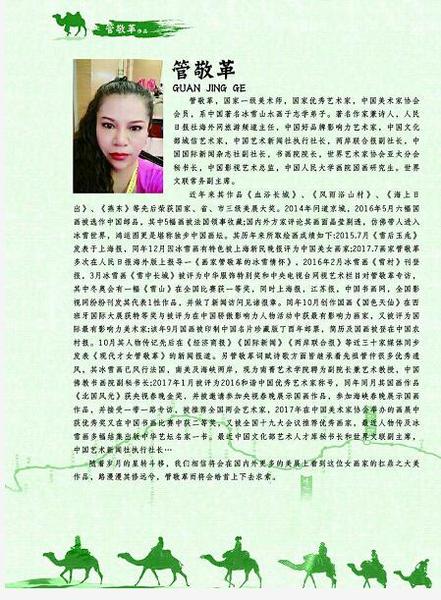 管敬革作品
管敬革
GUAN JING GE
管敬革，国家一级美术师，国家优秀艺术家，中国美术家协会
会员，系中国著名冰雪山水画于志学弟子。著名作家兼诗人，人民
日报社海外网旅游频道主任，中国好品牌影响力艺术家，中国文化
部诚信艺术家，中国艺术新闻社执行社长，两岸联合报副社长，中
国国际新闻杂志社副社长，书画院院长，世界艺术家协会亚大分会
秘书长，中国影视艺术总监，中国人民大学画院国画研究生。世界
文联常务副主席。
近年来其作品《血浴长城》、《风雨浴山村》、《海上日
出》、《燕东》等先后荣获国家、省、市三级美展大奖。2014年问道京城，2016年5月六幅国
画被选作中国邮品，其中5幅画被法国领事收藏；国内外方家评论其画面晶莹剔透，仿佛带人进入
冰雪世界，鸿运图更是堪称独步中国画坛。其历年来所取绘画成绩如下：2015.7月《雪后玉兔》
发表于上海报，同年12月冰雪画有特色被上海新民晚报评为中国美女画家；2017.7画家管敬革
多次在人民日报海外版上报导一《画家管敬革的冰雪情怀》，2016年2月冰雪画《雪村》刊登
报，3月冰雪画《雪中长城》被评为中华服饰特别奖和中央电视台网视艺术栏目对管敬革专访，
其中冬奥会有一幅《雪山》在全国比赛获一等奖，同时上海报，江苏报，中国书画网，全国影
视网纷纷刊发其代表1性作品，并做了新闻访问见诸报章。同年10月创作国画《国色天仙》在西
班牙国际大展获特等奖与被评为在中国轻微影响力人物活动中获最有影响力画家，又被评为国
际最有影响力美术家；该年9月国画被印制中国名片珍藏版丁酉年邮票，简历及国画被登在中国农
村报。10月其人物传记先后在《经济商报》《国际新闻》《两岸联合报》等近三十家媒体同步
发表《现代才女管敬革》的新闻报道。另管敬革词赋诗歌方面皆继承着先祖管仲很多优秀遗
风，其冰雪画已风行法国，南美及海峡两岸，现为南菁艺术学院聘为副院长兼艺术教授，中国
佛教书画院副秘书长；2017年1月被评为2016和谐中国优秀艺术家称号，同年同月其国画作品
《北国风光》获央视春晚金奖，并被邀请参加央视春晚展示国画作品，参加海峡春晚展示国画
作品，并接受一带一路专访，被推荐全国两会艺术家，2017年在中国美术家协会举办的画展中
获优秀奖又在中国书画比赛中获二等奖，又被全国十九大会议推荐优秀画家，最近人物传及冰
雪画多幅结集出版中华艺坛名家一书。最近中国文化部艺术人才库秘书长和世界文联副主席，
中国艺术新闻社执行社长…
随着岁月的星转斗移，我们相信将会在国内外更多的美展上看到这位女画家的扛鼎之大美
作品，路漫漫其修远兮，管敬革而将会皓首上下去求索。